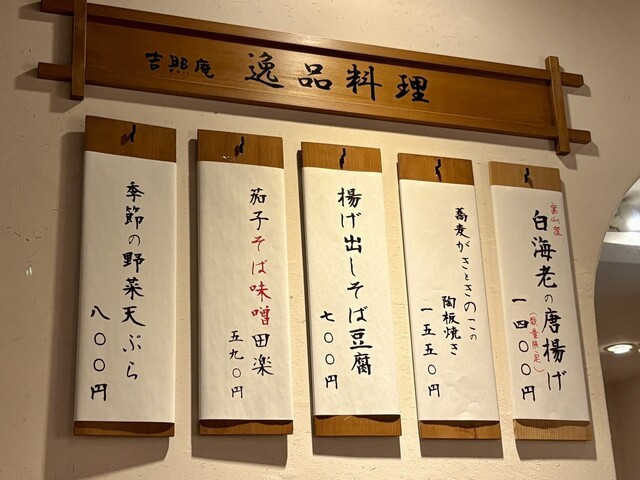 吉照庵 逸品料理
富山産
白海老の唐揚げ
(数量限定)
一四〇〇円
蕎麦がきときのこの
陶板焼き
一五五〇円
揚げ出しそば豆腐
七〇〇円
茄子そば味噌田楽
五九〇円
季節の野菜天ぷら
八〇〇円